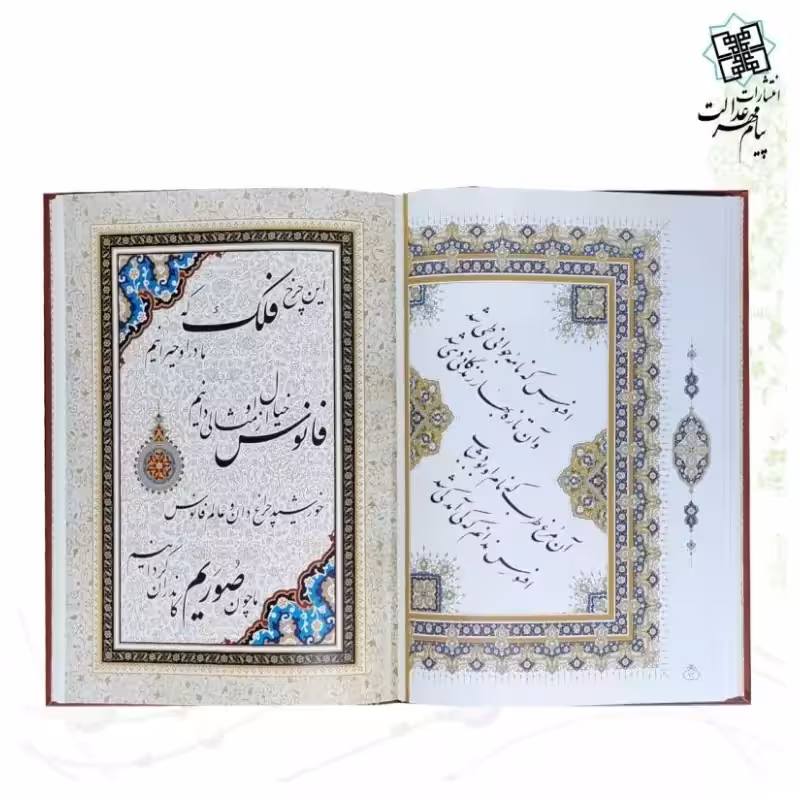 انتشارات
پیام مهر عدالت
افسوس که نامه جوانی طی شد
وآن تازه بهار زندگانی دی شد
آن مرغ طرب که نام او بود شباب
افسوس ندانم که کی آمد کی شد
این چرخ فلک که
ما در او حیرانیم
فانوس خیال از او مثالی دانیم
خورشید چراغ دان و عالم فانوس
ما چون صوریم کاندر او گردانیم